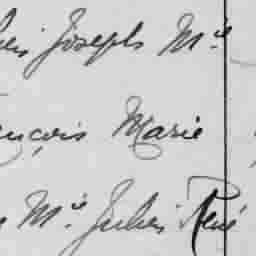 Joseph Mie
nçois Marie
Mie Julien René